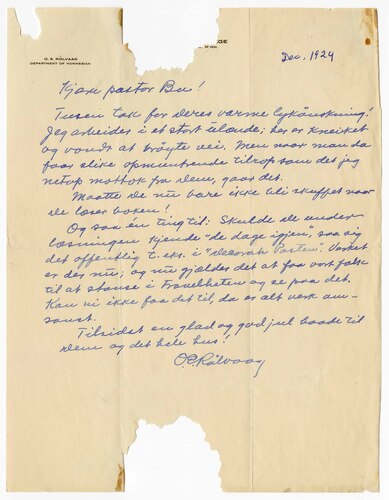 O. E. ROLVAAG
DEPARTMENT OF NORWEGIAN
Dec. 1924
Kjære pastor Bu!
Tusen tak for deres varme lykönskning!
Jeg arbeider i et stort ulænde; her er kneiket
og vondt at bröyte vei. Men naar man da
faar slike opmuntrende tilrop som det jeg
netop mottok fra dem, gaar det.
Maatte de nu bare ikke bli skuffet naar
de læser boken!
Og saa én ting til: Skulde de under
læsningen kjende "de dage igjen", saa sig
det offentlig t. eks. i "Decorah Posten". Verket
er der nu; og nu gjælder det at faa vort folk
til at stanse i Travelheten og se paa det.
Kan vi ikke faa det til, da er alt verk um-
sonst.
Tilsidst en glad og god jul baade til
dem og det hele hus!
O.E. Rölvaag